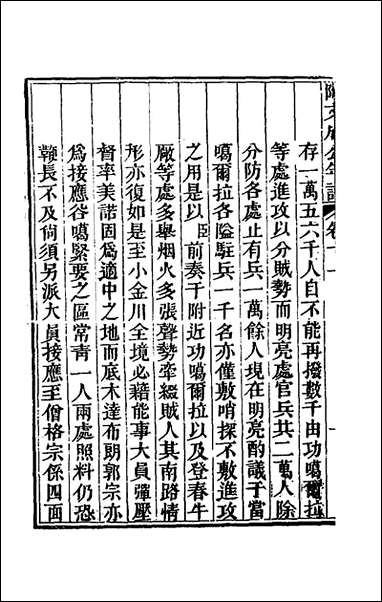 存一萬五六千人自不能再撥數千由功噶爾拉
等處進攻以分賊勢而明亮處官兵共二萬人除
分防各處止有兵一萬餘人現在明亮酌議于當
噶爾拉各隘駐兵一千名亦僅敷哨探不敷進攻
之用是以臣前奏于附近功噶爾拉以及登春牛
廠等處多舉烟火多張聲勢牽綴賊人其南路情
形亦復如是至小金川全境必藉能事大員彈壓
督率美諾固為適中之地而底木達布朗郭宗亦
為接應谷噶緊要之區常青一人兩處照料仍恐
鞭長不及尙須另派大員接應至僧格宗係四面